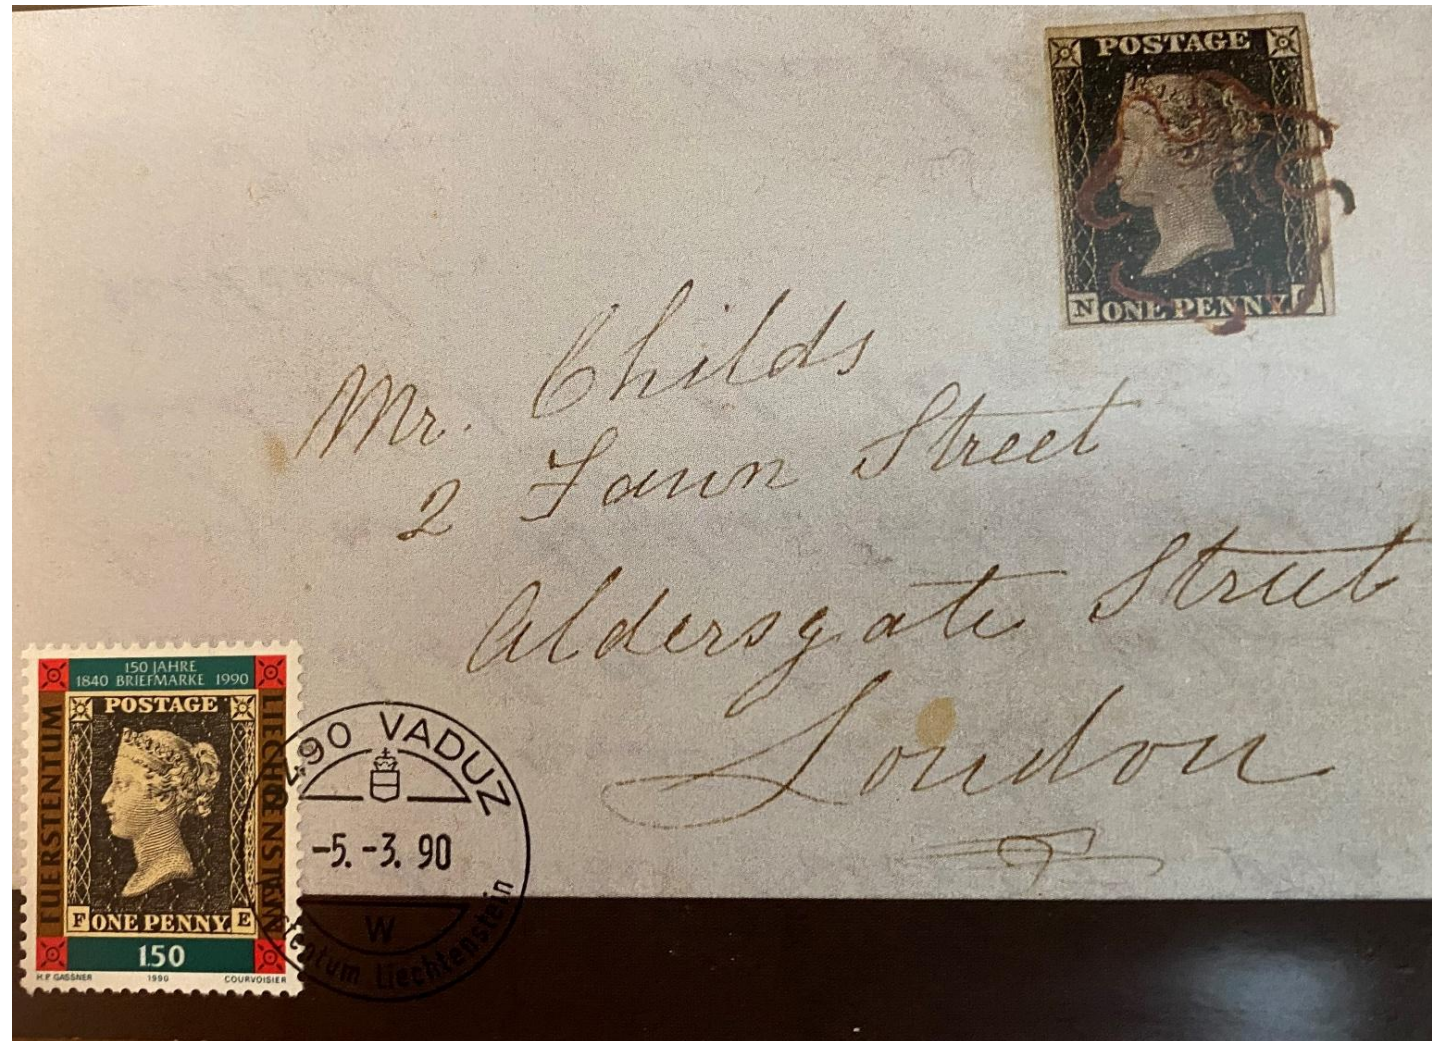 POSTAGE
N ONE PENNY
Mr. Childs
2 Fann Street
Aldersgate Street
London
150 JAHRE
1840 BRIEFMARKE 1990
FUERSTENTUM
LIECHTENSTEIN
POSTAGE
F ONE PENNY E
1.50
H.P. GASSNER 1990 COURVOISIER
9490 VADUZ
-5.-3.90
W
Fürstentum Liechtenstein